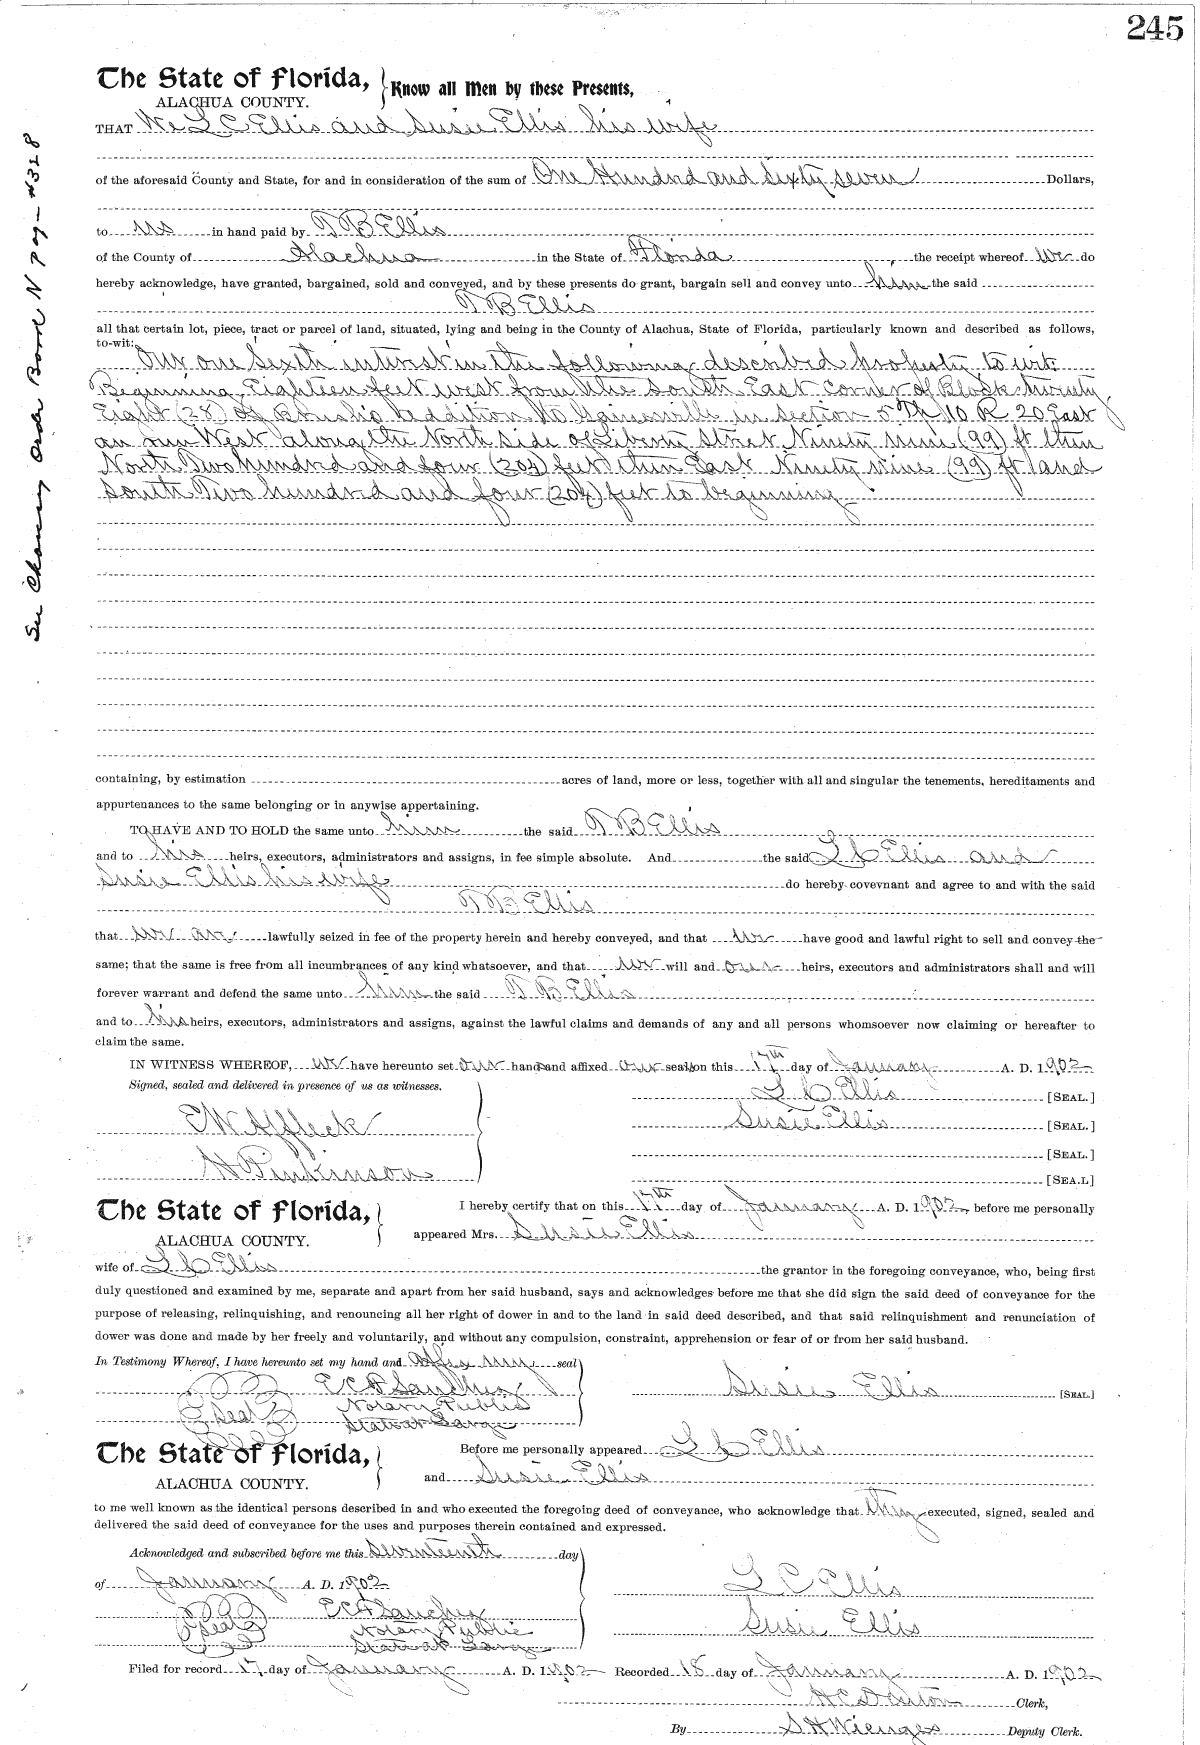 245
The State of Florida,
ALACHUA COUNTY.
Know all Men by these Presents,
THAT We L C Ellis and Susie Ellis his wife
of the aforesaid County and State, for and in consideration of the sum of One Hundrd and Sixty seven Dollars,
to us in hand paid by T B Ellis
of the County of Alachua in the State of Florida the receipt whereof we do
hereby acknowledge, have granted, bargained, sold and conveyed, and by these presents do grant, bargain sell and convey unto him the said
T B Ellis
all that certain lot, piece, tract or parcel of land, situated, lying and being in the County of Alachua, State of Florida, particularly known and described as follows,
to-wit:
Our one Sixth interest in the following described property to wit:
Beginning Eighteen feet west from the South East corner of Block twenty
Eight (28) of Addition to Gainesville in Section 5 Tp 10 R 20 East
an run West along the North side of Liberty Street Ninety nine (99) ft then
North Two hundrd and four (204) feet then East Ninety nine (99) ft and
South Two hundrd and four (204) feet to beginning
See Chancery Order Book N pg #328
containing, by estimation acres of land, more or less, together with all and singular the tenements, hereditaments and
appurtenances to the same belonging or in anywise appertaining.
TO HAVE AND TO HOLD the same unto him the said T B Ellis
and to his heirs, executors, administrators and assigns, in fee simple absolute. And the said L C Ellis and
Susie Ellis his wife do hereby covevnant and agree to and with the said
T B Ellis
that we are lawfully seized in fee of the property herein and hereby conveyed, and that we have good and lawful right to sell and convey the
same; that the same is free from all incumbrances of any kind whatsoever, and that we will and our heirs, executors and administrators shall and will
forever warrant and defend the same unto him the said T B Ellis
and to his heirs, executors, administrators and assigns, against the lawful claims and demands of any and all persons whomsoever now claiming or hereafter to
claim the same.
IN WITNESS WHEREOF, we have hereunto set our hands and affixed our seals on this 17th day of January A. D. 1902
Signed, sealed and delivered in presence of us as witnesses.
L C Ellis [SEAL.]
E W Affleck
Susie Ellis [SEAL.]
[SEAL.]
H Pinkinson
[SEA.L]
The State of Florida,
ALACHUA COUNTY.
I hereby certify that on this 17th day of January A. D. 1902 before me personally
appeared Mrs. Susie Ellis
wife of L C Ellis the grantor in the foregoing conveyance, who, being first
duly questioned and examined by me, separate and apart from her said husband, says and acknowledges before me that she did sign the said deed of conveyance for the
purpose of releasing, relinquishing, and renouncing all her right of dower in and to the land in said deed described, and that said relinquishment and renunciation of
dower was done and made by her freely and voluntarily, and without any compulsion, constraint, apprehension or fear of or from her said husband.
In Testimony Whereof, I have hereunto set my hand and affix my seal
E C F Sanchez
Susie Ellis [SEAL.]
Seal
Notary Public
State at Large
The State of Florida,
ALACHUA COUNTY.
Before me personally appeared L C Ellis
and Susie Ellis
to me well known as the identical persons described in and who executed the foregoing deed of conveyance, who acknowledge that they executed, signed, sealed and
delivered the said deed of conveyance for the uses and purposes therein contained and expressed.
Acknowledged and subscribed before me this Seventeenth day
of January A. D. 1902
L C Ellis
E C F Sanchez
Seal
Notary Public
State at Large
Susie Ellis
Filed for record 17 day of January A. D. 1902 Recorded 18 day of January A. D. 1902
H C Denton Clerk,
By S H Wienges Deputy Clerk.